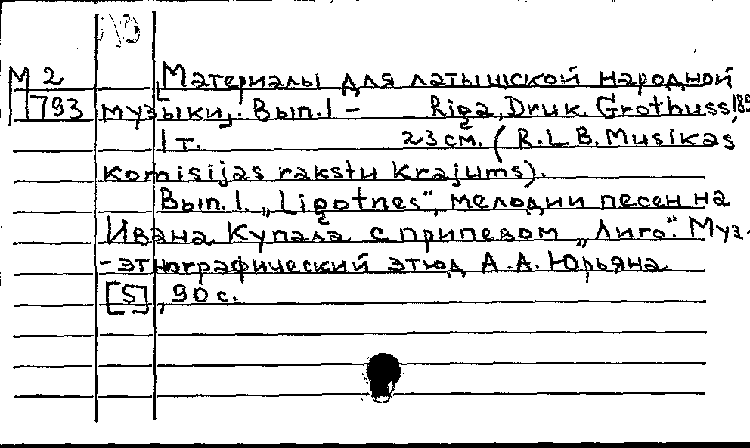 М 2
793
[Материалы для латышской народной
музыки]. Вып. 1 - Riga, Druk. Grothuss, 189
1 т. 23 см. (R.L.B. Musikas
Komisijas rakstu Krajums).
Вып. 1. „Ligotnes", мелодии песен на
Ивана Купала с припевом „Лиго". Муз.
-этнографический этюд А.А. Юрьяна.
[5], 90 с.